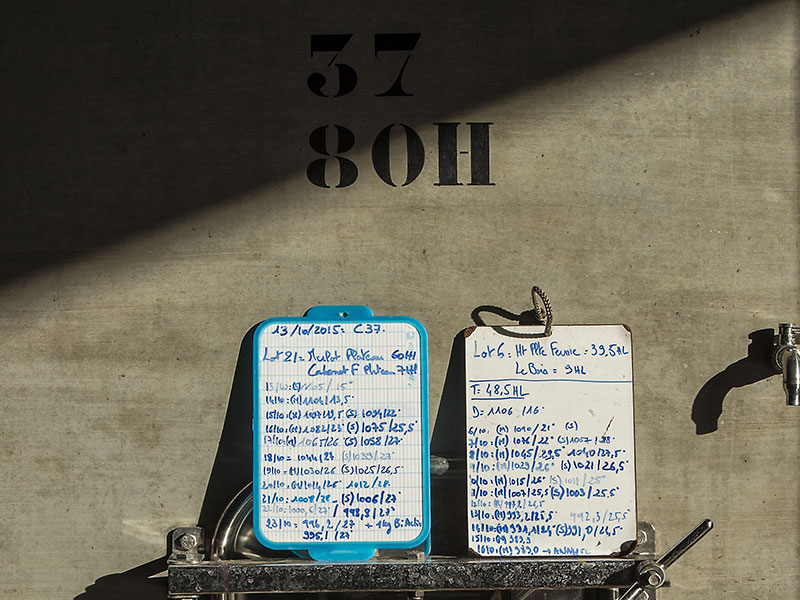 37
80H
13/10/2015: C37.
Lot 21 = Merlot Plateau 60Hl
Cabernet F Plateau 7Hl
13/10: (S) 1105 / 15°
14/10: (M) 1104 / 13,5°
15/10: (M) 1097/19,5 (S) 1094/22°
16/10: (M) 1082/23° (S) 1075/25,5°
17/10: (M) 1065/26 (S) 1058/27°
18/10 = 1044/27 (S) 1039/27°
19/10 = (M) 1030/26 (S) 1025/26,5°
20/10 = (M) 1014/26° 1012/28°
21/10: 1008/28 - (S) 1006/27°
22/10: 1000,6/27° 998,8/27°
23/10 = 996,2/27 + 1kg
995,1/27°
Lot 6 = Ht Pte = 39,5HL
Le Bois = 9HL
T = 48,5HL
D = 1106 /16°
6/10: (M) 1090/21° (S)
7/10: (M) 1076/22° (S) 1057/28°
8/10: (M) 1045/29,5 1040/27,5°
9/10: (M) 1029/26° (S) 1021/26,5°
10/10: (M) 1015/26° (S) 1011/25°
11/10: (M) 1007/25,5 (S) 1003/25,5°
12/10: (M) 997,2/26,5°
13/10: (M) 992,5° 992,3/25,5°
14/10: (M) 991,1/24° (S) 991,0/24,5°
15/10:
16/10: (M) 989,0 →